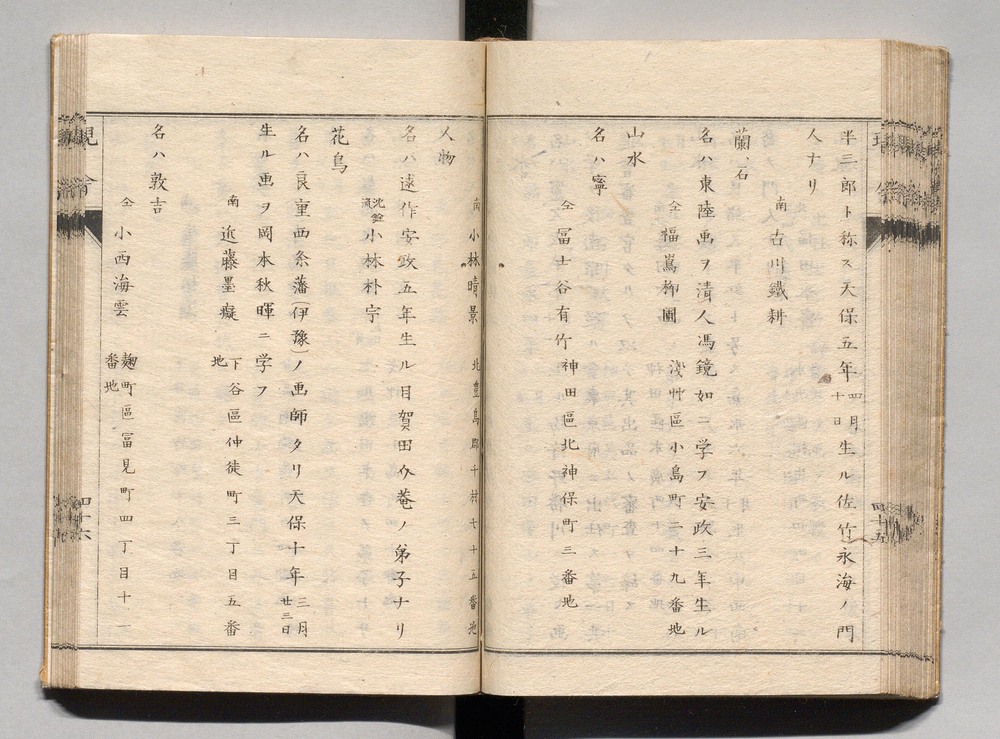 半三郎ト称ス天保五年四月十日生ル佐竹永海ノ門
人ナリ
南 古川鐵耕
蘭、石
名ハ東陸画ヲ清人馮鏡如ニ学フ安政三年生ル
仝 福嶌柳圃 淺艸區小島町三十九番地
山水
名ハ寧
仝 冨士谷有竹 神田區北神保町三番地
四十五
南 小林晴景 北豊島郡千村七十五番地
人物
名ハ遠作安政五年生ル目賀田介菴ノ弟子ナリ
小林朴宇
花鳥
名ハ良重西条藩(伊豫)ノ画師タリ天保十年三月廿三日
生ル画ヲ岡本秋暉ニ学フ
南 近藤墨癡 下谷區仲徒町三丁目五番地
名ハ敦吉
仝 小西海雲 麹町區冨見町四丁目十一番地
四十六